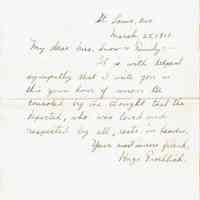 St. Louis, Mo.
March 25, 1911.
My dear Mrs. Snow & Family:-
It is with deepest
sympathy that I write you in
this your hour of sorrow. Be
consoled by the thought that the
departed, who was loved and
respected by all, rests in Heaven.
Your most sincere friend,
Hugo